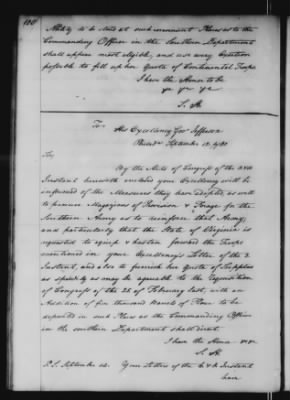 100
Ability to be sent at such convenient Places as to the
Commanding Officer in the Southern Department
shall appear most eligible, and use every Exertion
possible to fill up her Quota of Continental Troops
I have the Honor to be
&c &c &c
S. H.
To His Excellency Gov Jefferson
Philada September 12. 1780
Sir,
By the Acts of Congress of the
Instant herewith enclosed your Excellency will be
informed of the Measures they have adopted, as well
to procure Magazines of Provision & Forage for the
Southern Army as to reinforce that Army,
and particularly that the State of Virginia is
requested to equip & hasten forward the Troops
mentioned in your Excellency's Letter of the 3
Instant, and also to furnish her Quota of Supplies
as speedily as may be agreeable to the Requisition
of Congress of the 25 of February last, with an
Addition of five thousand Barrels of Flour to be
deposited in such Places as the Commanding Officer
in the southern Department shall direct.
I have the Honor &c &c
S. H.
P.S. September 14. Your Letters of the & 8 Instant
have